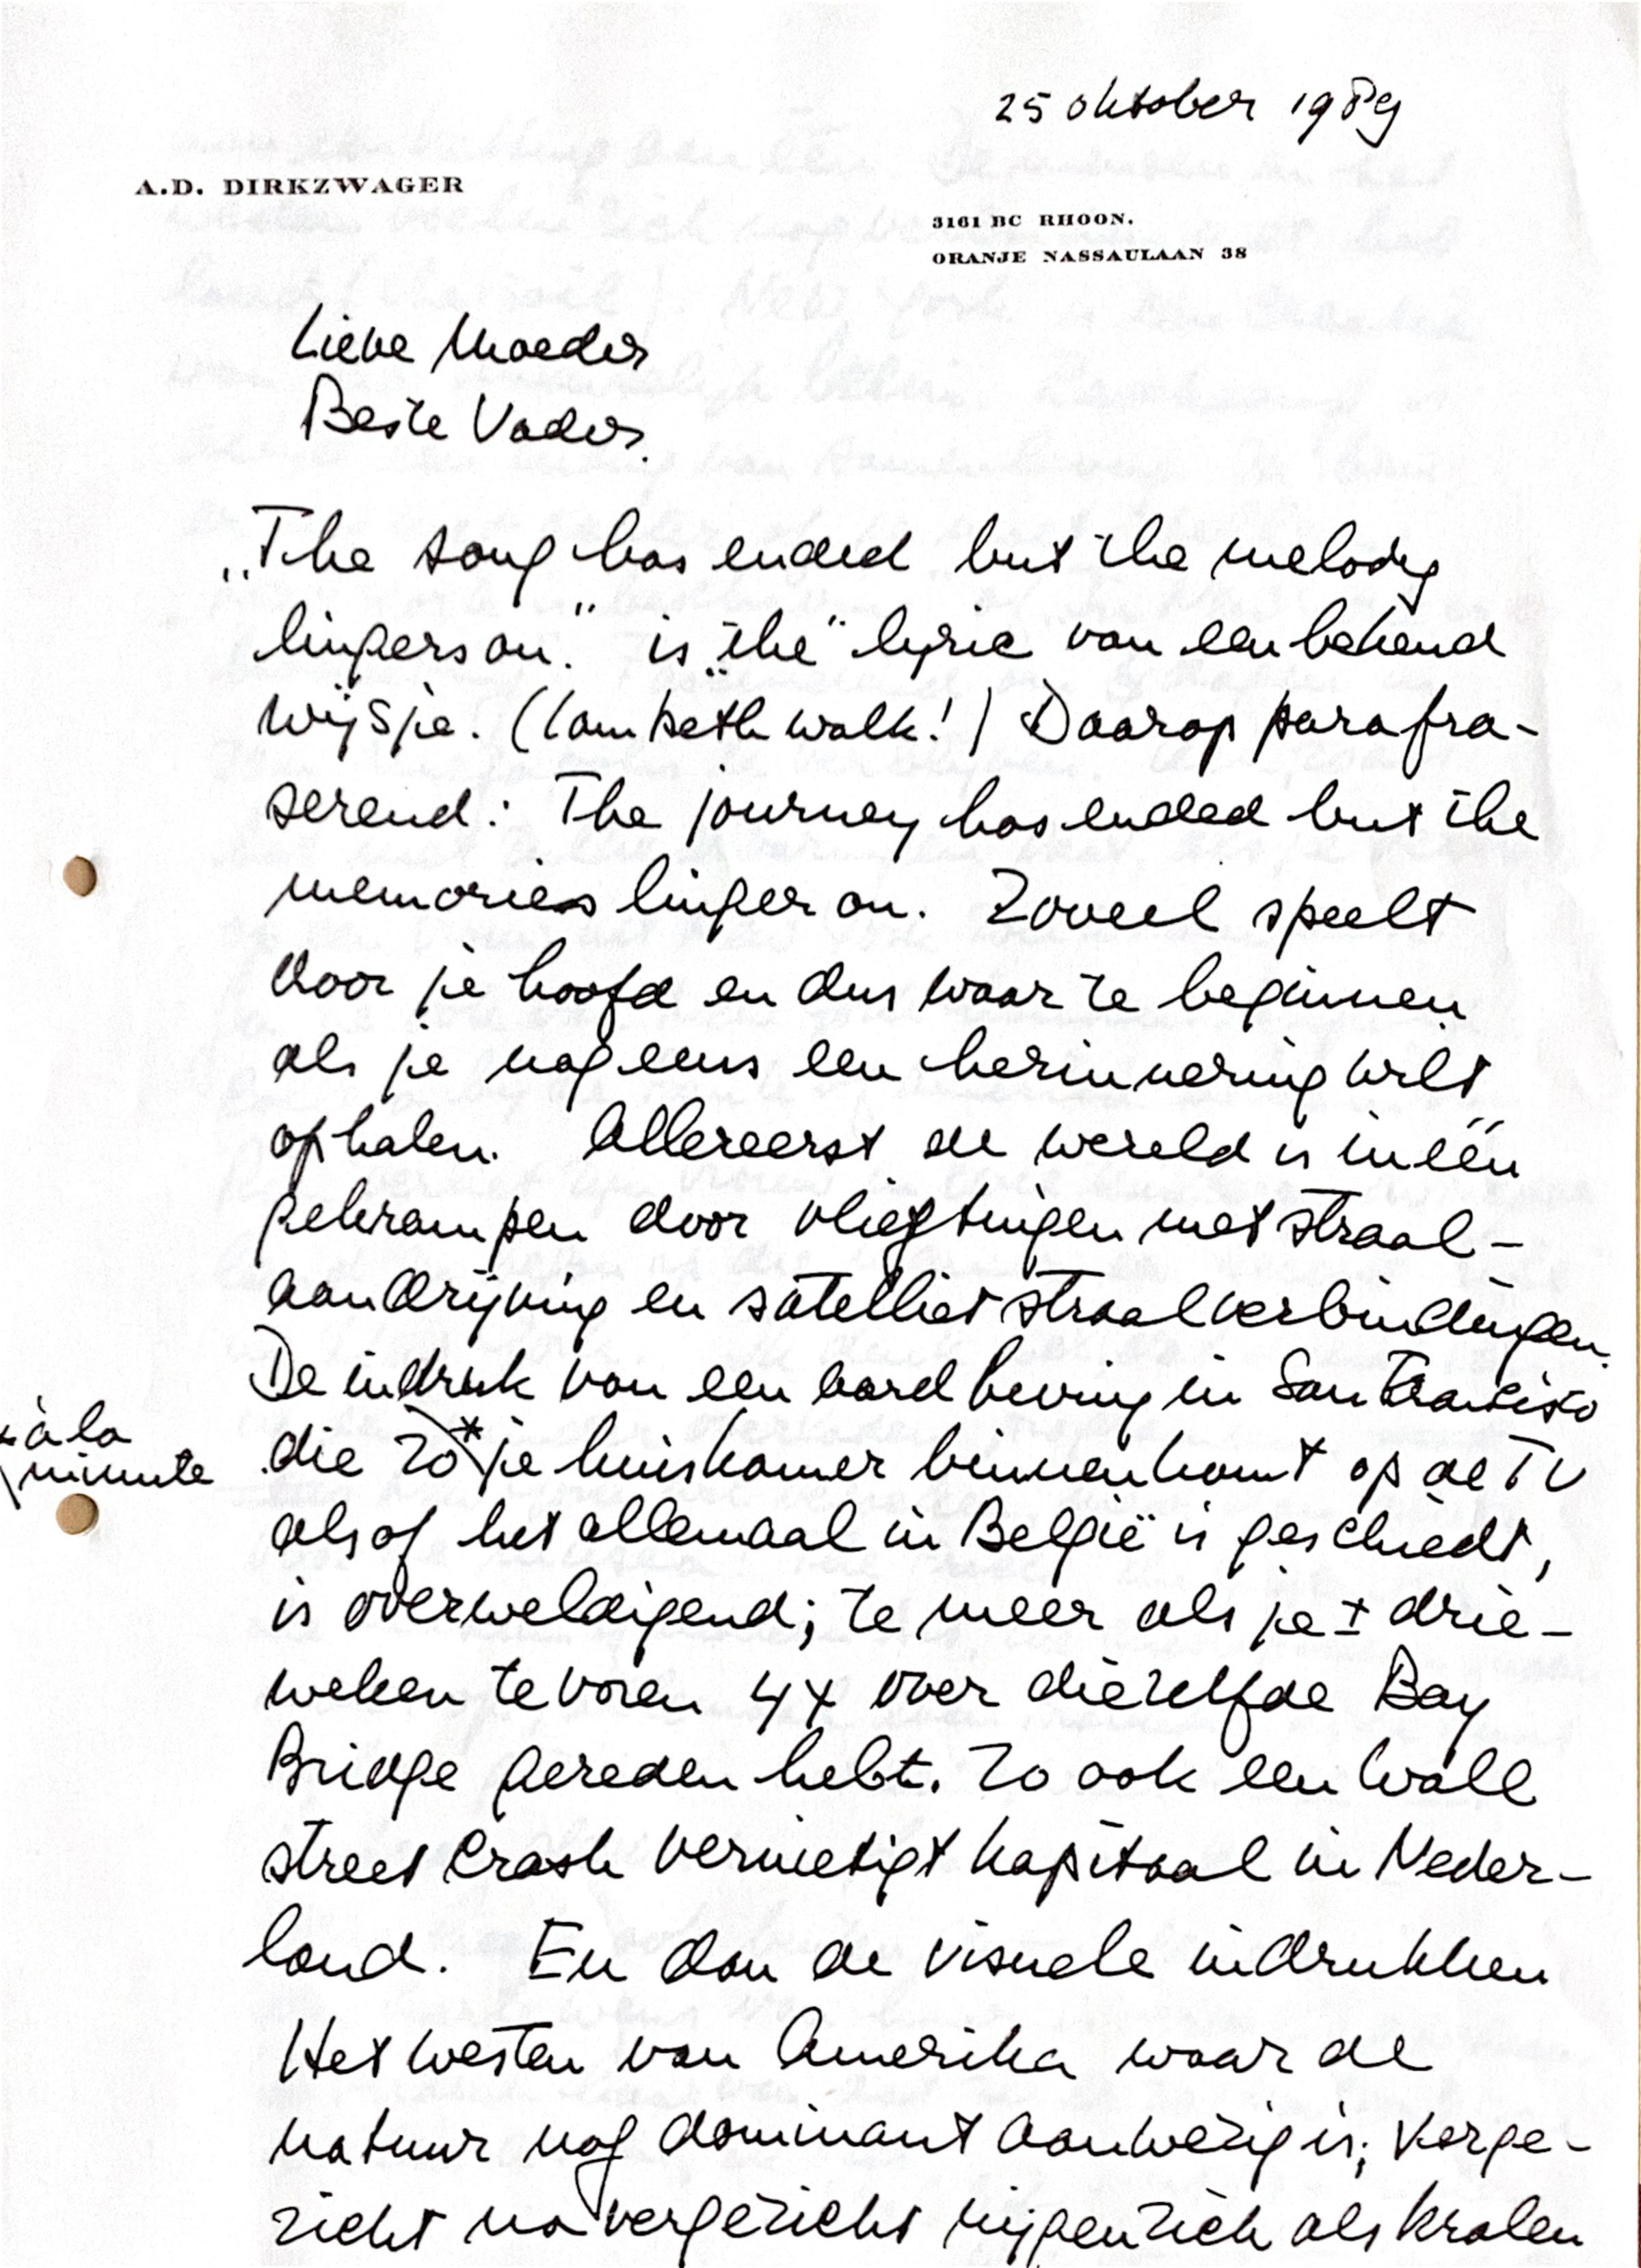 25 oktober 1989
A.D. DIRKZWAGER
3161 BC RHOON.
ORANJE NASSAULAAN 38
Lieve Moeder
Beste Vader.
„The song has ended but the melody
lingers on." is „the" lyric van een bekend
wijsje. (Lambeth walk!) Daarop parafra-
serend: The journey has ended but the
memories linger on. Zoveel speelt
door je hoofd en dus waar te beginnen
als je nog eens een herinnering wilt
ophalen. Allereerst de wereld is inéén
gekrompen door vliegtuigen met straal-
aandrijving en satelliet straalverbindingen.
De indruk van een aardbeving in San Francisco
die zo * je huiskamer binnenkomt op de TV
* à la
minute
alsof het allemaal in België is geschiedt,
is overweldigend; te meer als je ± drie-
weken tevoren 4x over diezelfde Bay
Bridge gereden hebt. Zo ook een Wall
street Crash vernietigt kapitaal in Neder-
land. En dan de visuele indrukken
Het westen van Amerika waar de
natuur nog dominant aanwezig is; verge-
zicht na vergezicht rijgen zich als kralen